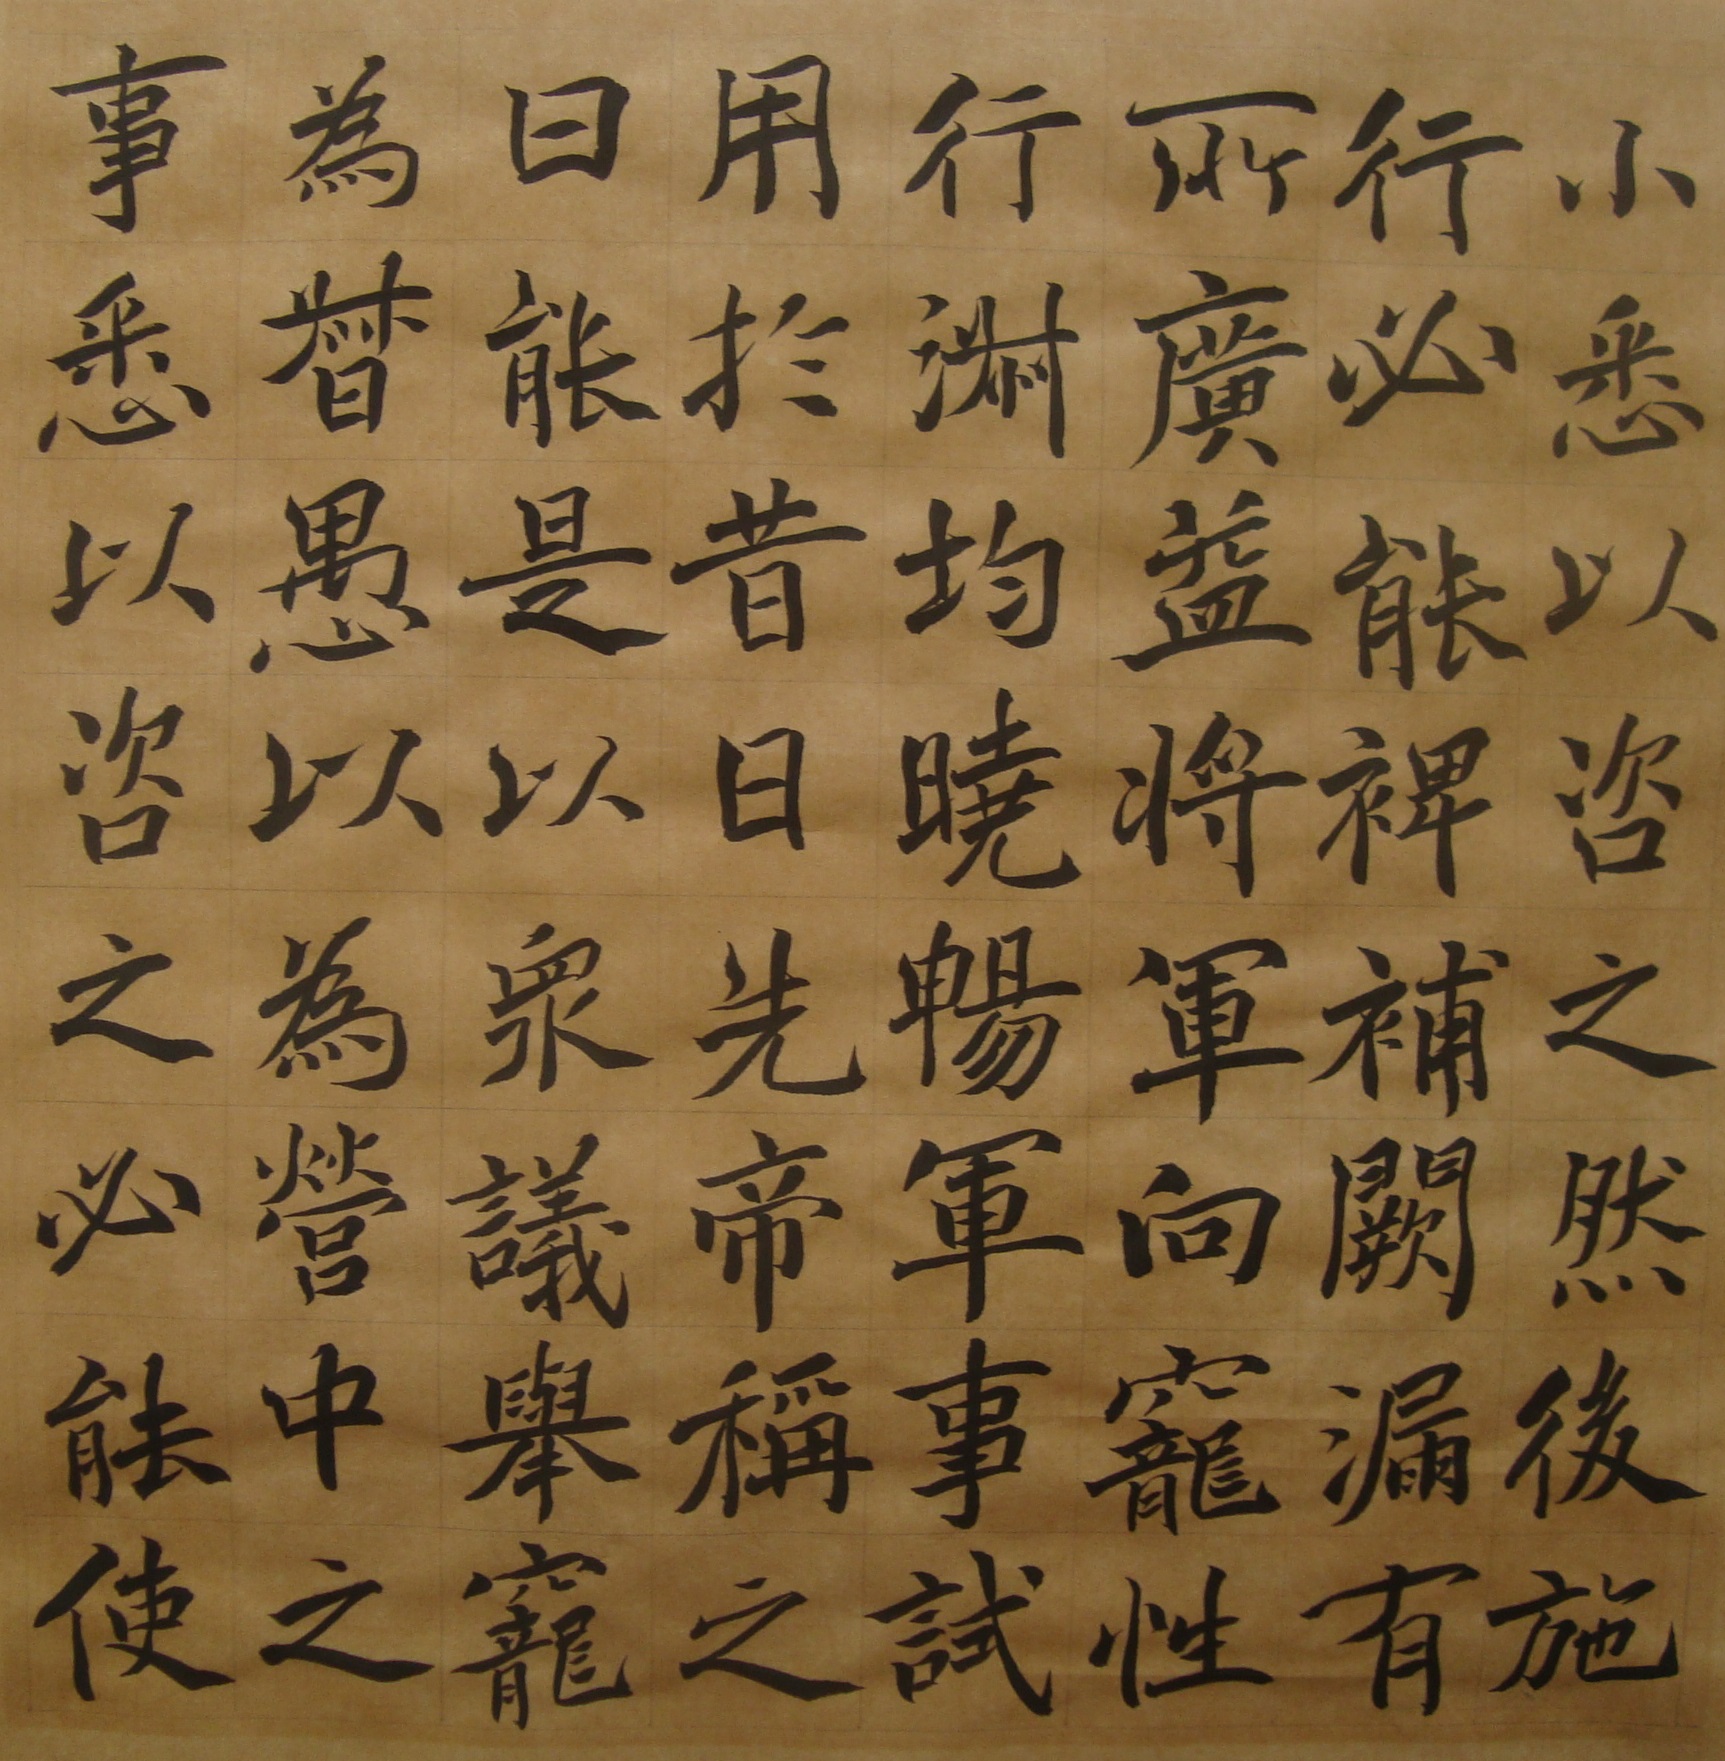 小悉以咨之然後施
行必能裨補闕漏有
所廣益將軍向寵性
行淑均曉暢軍事試
用於昔日先帝稱之
曰能是以眾議舉寵
為督愚以為營中之
事悉以咨之必能使